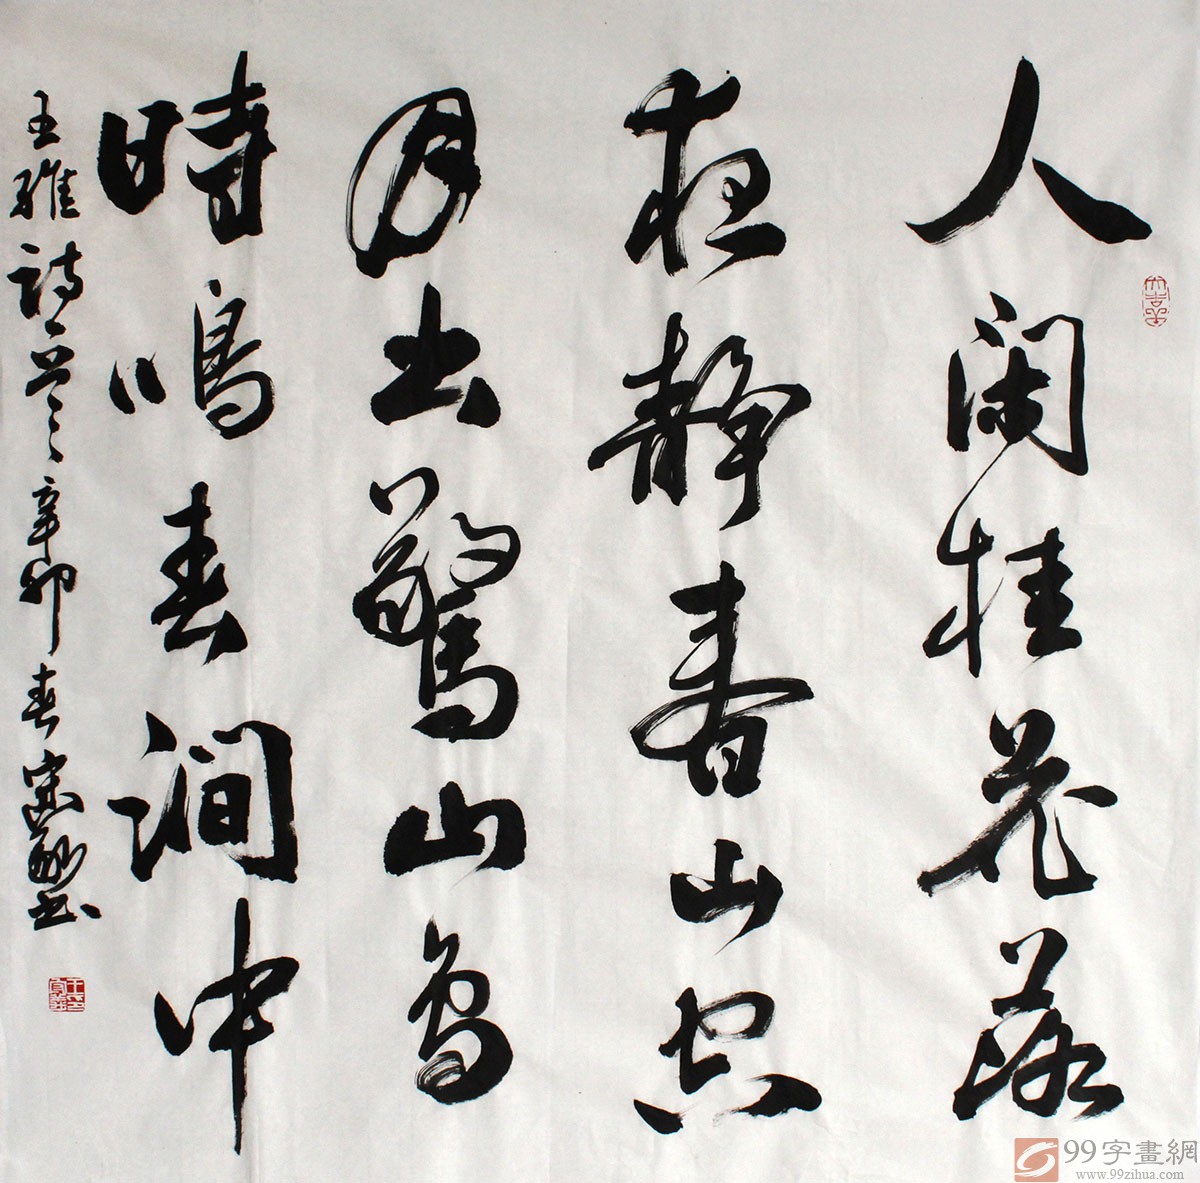 人闲桂花落
夜靜春山空
月出驚山鳥
時鳴春澗中
王維詩 辛卯春 書
99字畫網
www.99zihua.com